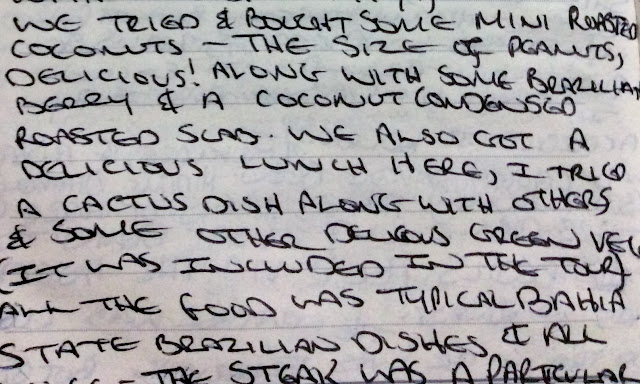 WE TRIED & BOUGHT SOME MINI ROASTED
COCONUTS - THE SIZE OF PEANUTS,
DELICIOUS! ALONG WITH SOME BRAZILIAN
BERRY & A COCONUT CONDENSED
ROASTED SLAB. WE ALSO GOT A
DELICIOUS LUNCH HERE, I TRIED
A CACTUS DISH ALONG WITH OTHERS
& SOME OTHER DELICIOUS GREEN VEG
(IT WAS INCLUDED IN THE TOUR)
ALL THE FOOD WAS TYPICAL BAHIA
STATE BRAZILIAN DISHES & ALL
- THE STEAK WAS A PARTICULAR